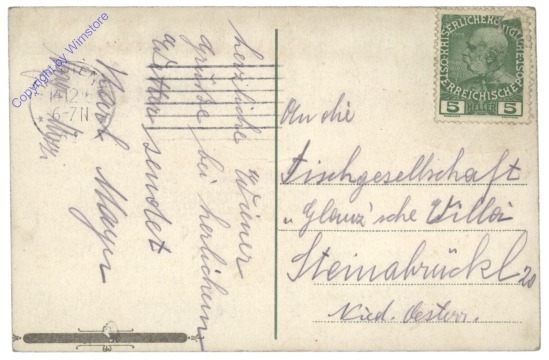 herzliche Wiener
Grüße bei herlichem
Wetter sendet
Karl Mayer
An die
Tischgesellschaft
"Glanz'sche Villa
Steinabrückl
Nied. Oesterr.
KAISERLICHEKÖNIGLICHE
ÖSTERREICHISCHE
5 HELLER 5
12
6-7N
Copyright by Wimstore